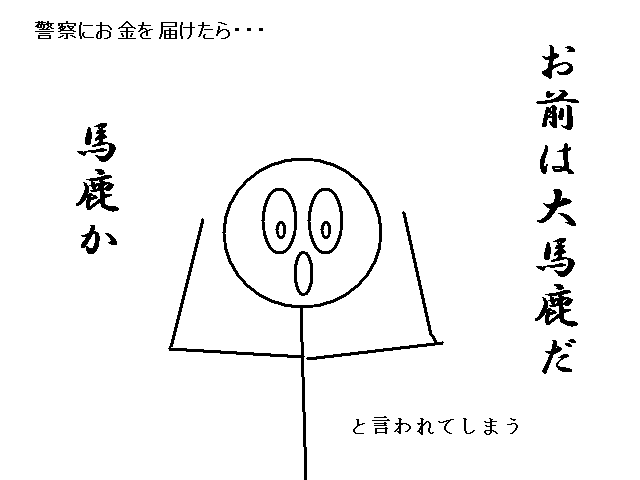 警察にお金を届けたら・・・
お前は大馬鹿だ
馬鹿か
と言われてしまう